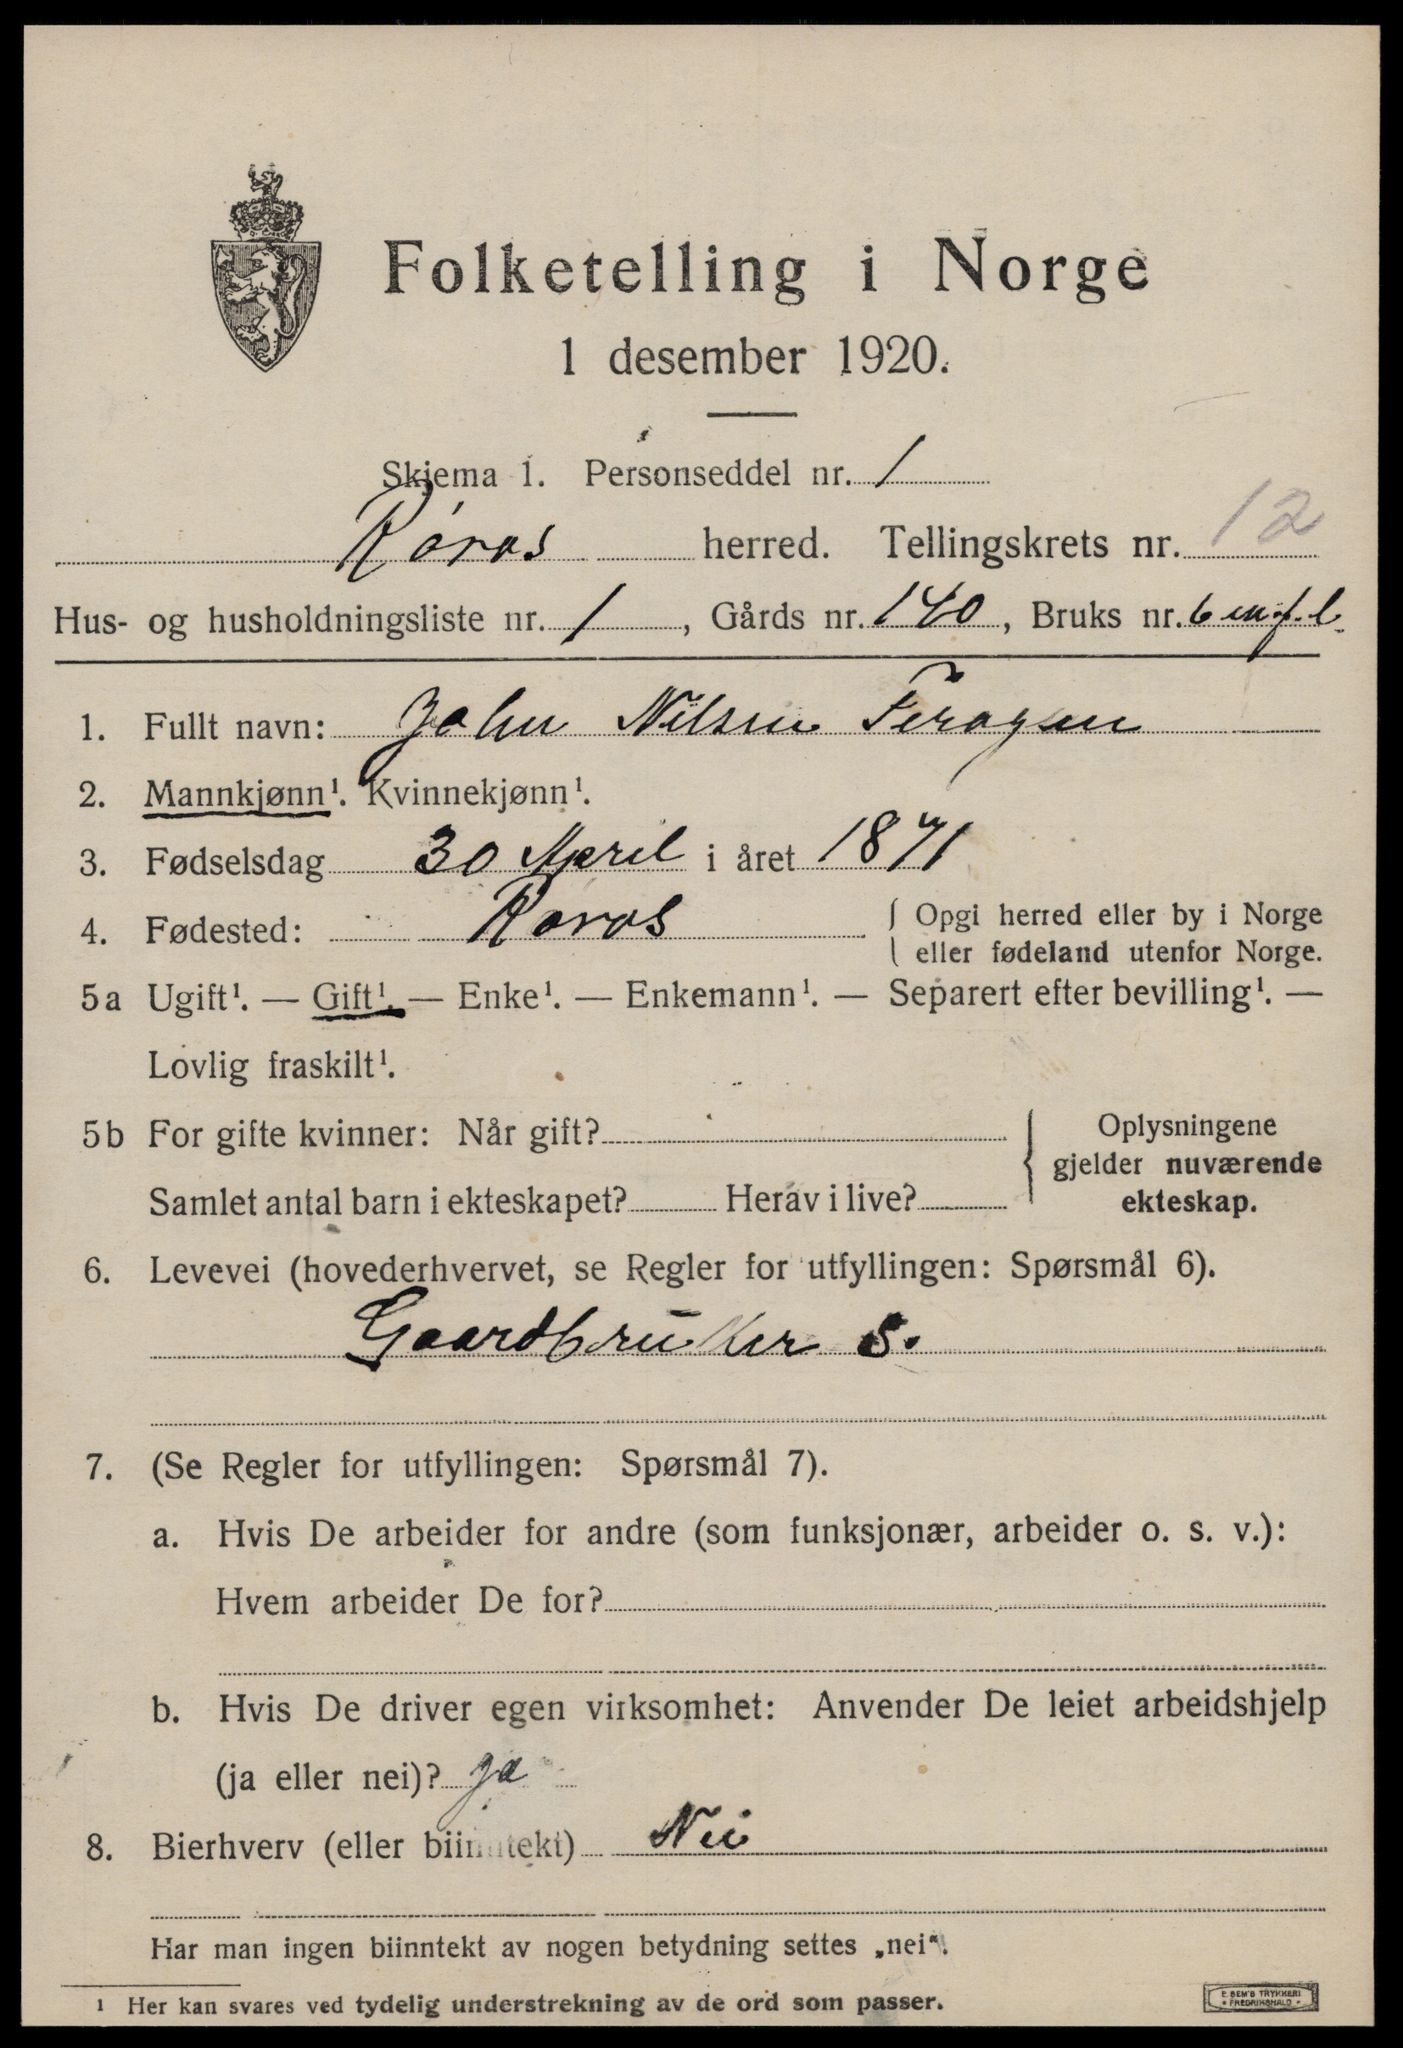 Folketelling i Norge
1 desember 1920.
Skjema 1. Personseddel nr. 1
Røros herred. Tellingskrets nr. 12
Hus- og husholdningsliste nr. 1, Gårds nr. 140, Bruks nr. 6 m. fl.
1. Fullt navn: John Nilsen Feragen
2. Mannkjønn¹. Kvinnekjønn¹.
3. Fødselsdag 30 April i året 1871
4. Fødested: Røros { Opgi herred eller by i Norge
eller fødeland utenfor Norge.
5a Ugift¹. — Gift¹. — Enke¹. — Enkemann¹. — Separert efter bevilling¹. —
Lovlig fraskilt¹.
5b For gifte kvinner: Når gift?
Samlet antal barn i ekteskapet? Herav i live?
Oplysningene
gjelder nuværende
ekteskap.
6. Levevei (hovederhvervet, se Regler for utfyllingen: Spørsmål 6).
Gaardbruker S.
7. (Se Regler for utfyllingen: Spørsmål 7).
a. Hvis De arbeider for andre (som funksjonær, arbeider o. s. v.):
Hvem arbeider De for?
b. Hvis De driver egen virksomhet: Anvender De leiet arbeidshjelp
(ja eller nei)? ja
8. Bierhverv (eller biinntekt) Nei
Har man ingen biinntekt av nogen betydning settes „nei“.
¹ Her kan svares ved tydelig understrekning av de ord som passer.
E. SEM'S TRYKKERI
FREDRIKSHALD